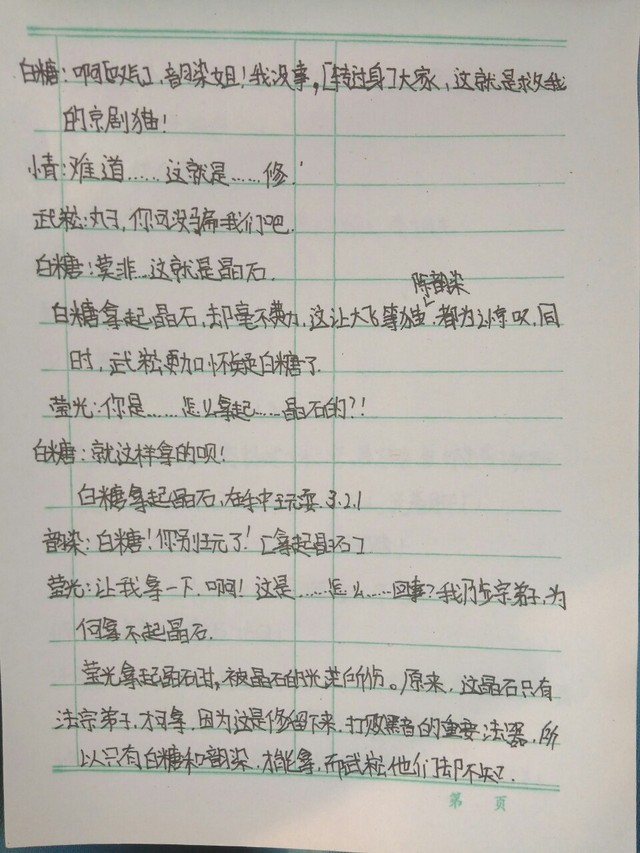 白糖：啊[叹气]，韵染姐！我没事，[转过身]大家，这就是救我
的京剧猫！
情：难道……这就是……修！
武崧：丸子，你可没骗我们吧.
白糖：莫非…这就是晶石.
陈韵染
白糖拿起晶石，却毫不费力，这让大飞等猫.都为之惊叹.同
时，武崧更加怀疑白糖了.
莹光：你是……怎么拿起……晶石的？！
白糖：就这样拿的呗！
白糖拿起晶石，在手中玩耍.3.2.1
韵染：白糖！你别玩了！[拿起晶石]
莹光：让我拿一下.啊！这是……怎么……回事？我乃宗弟子，为
何拿不起晶石.
莹光拿起晶石时，被晶石的光芒所伤。原来，这晶石只有
法宗弟子，才可拿.因为这是修留下来.打败黑者的重要法器，所
以只有白糖和韵染.才能拿，而武崧他们却不知.
第 頁